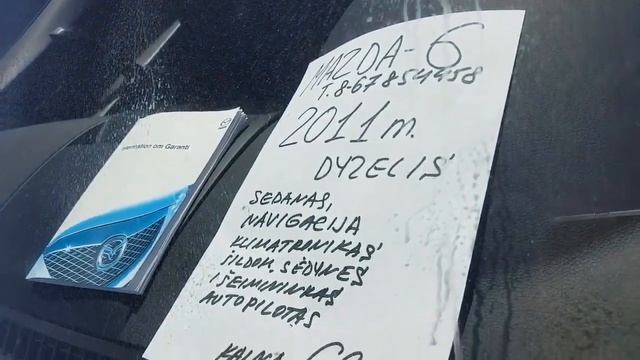 Information om Garanti
MAZDA-6
T.8-67854458
2011m.
DYZELIS
SEDANAS,
NAVIGACIJA
KLIMATRONIKAS
ŠILDOM. SĖDYNĖS
IŠEIMININKAS
AUTOPILOTAS
KAINA